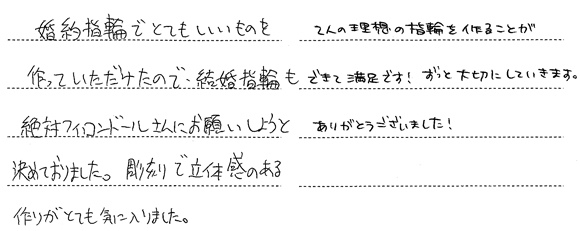 婚約指輪でとてもいいものを
作っていただけたので、結婚指輪も
絶対フィコンドールさんにお願いしようと
決めておりました。彫刻で立体感のある
作りがとても気に入りました。
2人の理想の指輪を作ることが
できて満足です！ずっと大切にしていきます。
ありがとうございました！